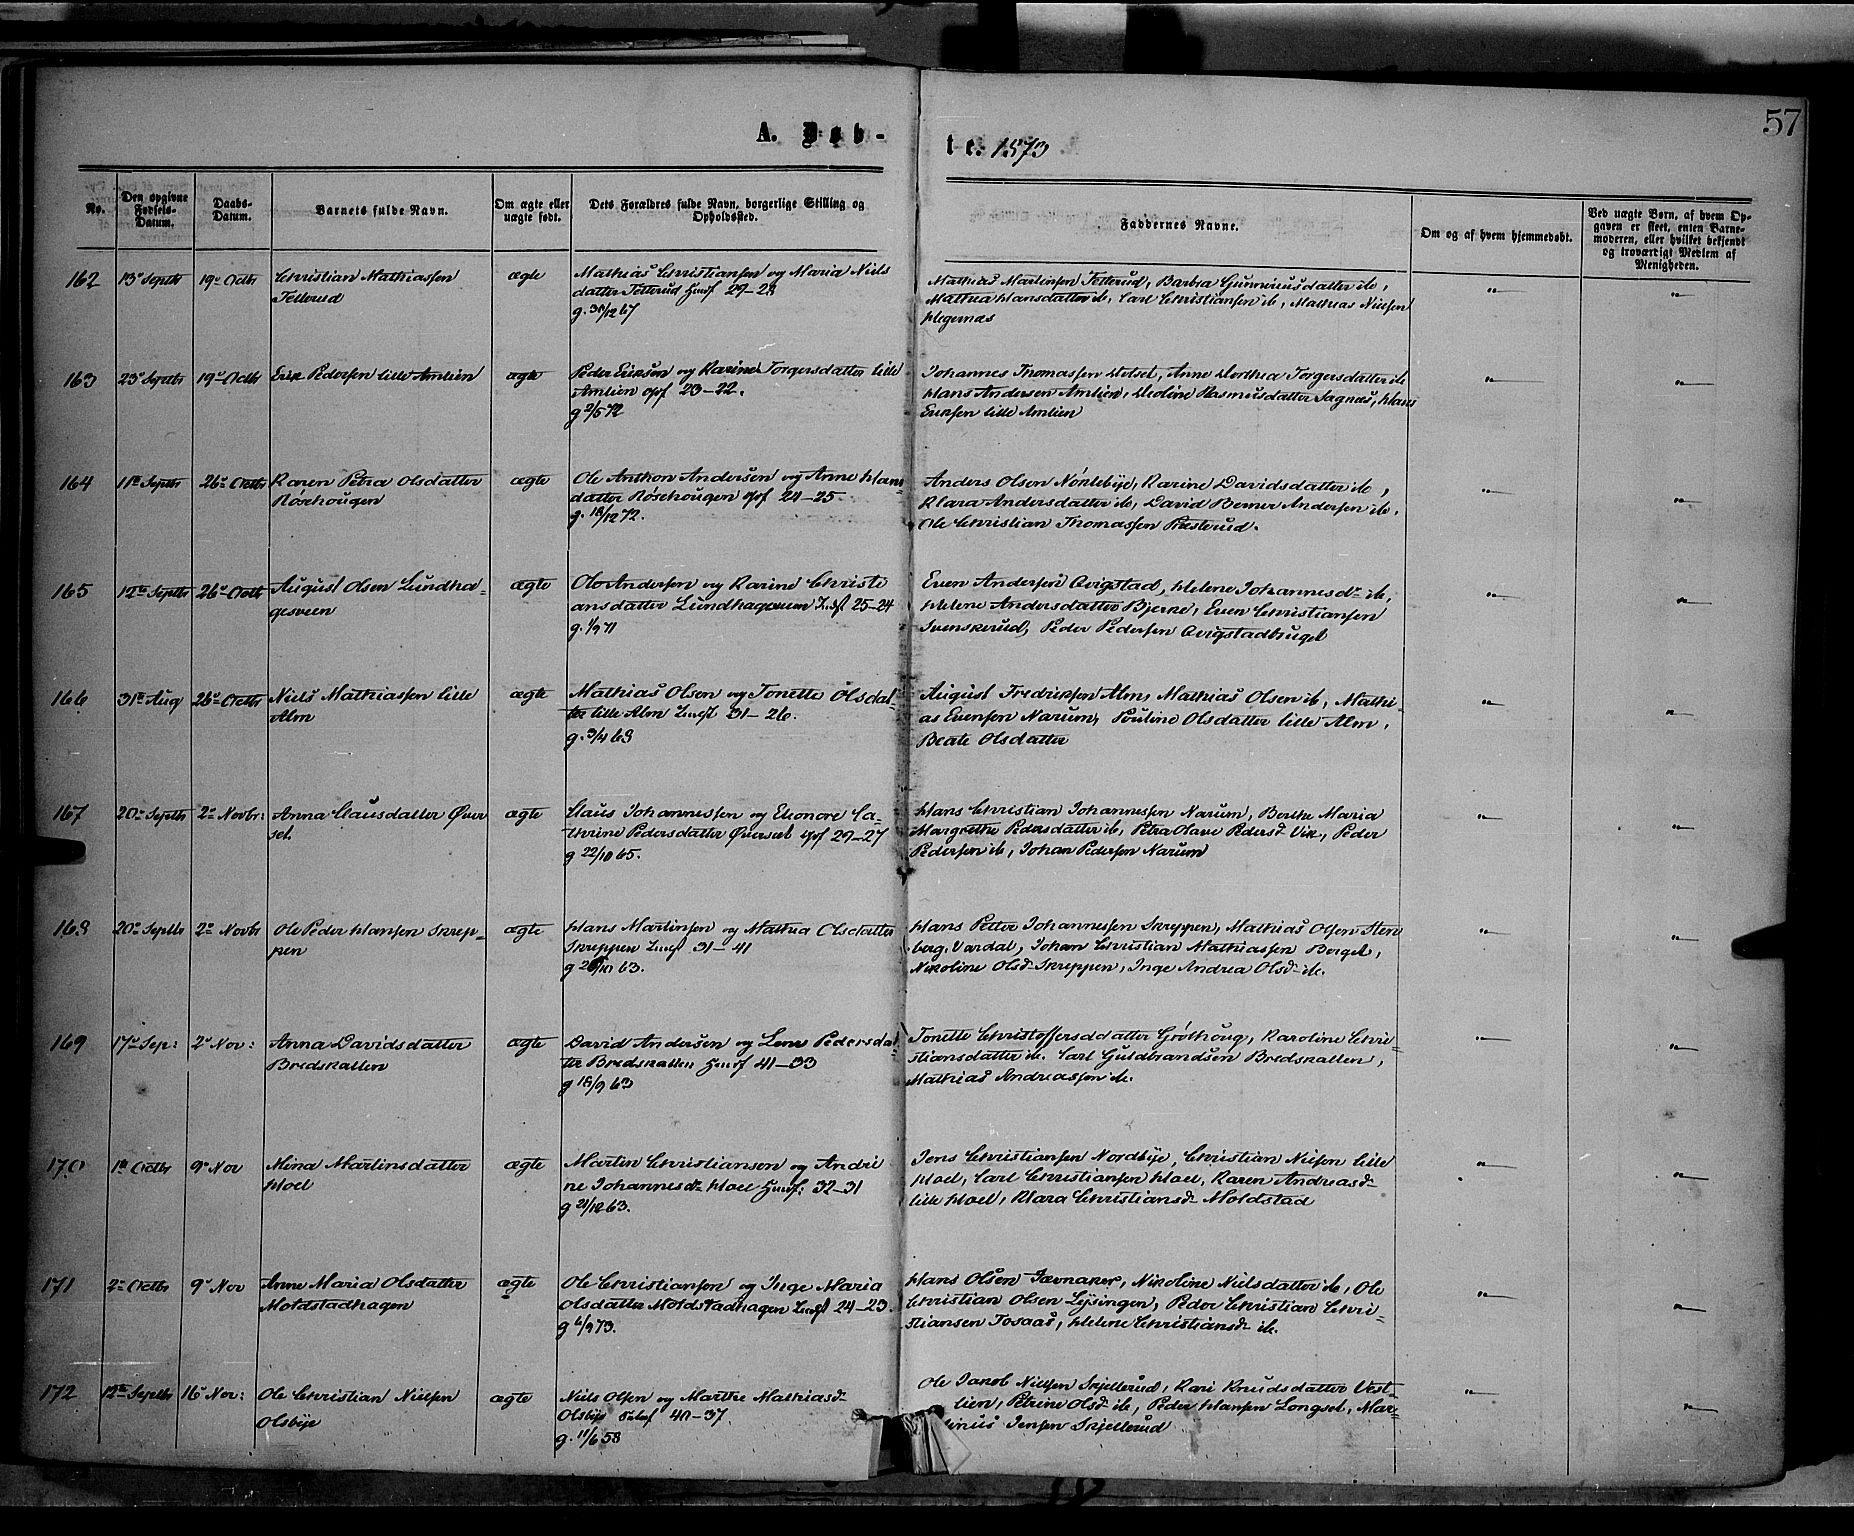 57
A. Døb-
te. 1873
No.
Den opgivne Fødsels-Datum.
Daabs-Datum.
Barnets fulde Navn.
Om ægte eller uægte født.
Dets Forældres fulde Navn, borgerlige Stilling og Opholdssted.
Faddernes Navne.
Om og af hvem hjemmedøbt.
Ved uægte Børn, af hvem Opgaven er skeet, enten Barnemoderen, eller hvilket bekjendt og troværdigt Medlem af Menigheden.
162 13de Septbr 19de Octbr Christian Mathiassen
Tetterud
ægte
Mathias Christiansen og Maria Niels
datter Tetterud Husf 29-28
g. 30/12 67
Mathias Martinsen Tetterud, Barbra Gunneriusdatter ib,
Mathea Hansdatter ib, Carl Christiansen ib, Mathias Nielsen
Hegernæs
163 23de Septbr 19de Octbr Erik Pedersen lille Amlien
ægte
Peder Eriksen og Karine Torgersdatter lille
Amlien 23-22.
g 2/5 72
Johannes Thomassen Holset, Anne Dorthea Torgersdatter ib
Hans Andersen Amlien, Heline Rasmusdatter Sagnæs, Hans
Eriksen lille Amlien
164 11te Septbr 26de Octbr Karen Petra Olsdatter
Røsehougen
ægte
Ole Anthon Andersen og Anne Hans-
datter Røsehougen 24-25
g. 18/12 72.
Anders Olsen Nøklebye, Karine Davidsdatter ib,
Klara Andersdatter ib, David Berner Andersen ib.
Ole Christian Thomassen Præsterud.
165 12te Septbr 26de Octbr August Olsen Lundha-
gesveen
ægte
Ole Andersen og Karine Christi
ansdatter Lundhagesveen Indst 25-24
g. 1/9 71
Even Andersen Qvigstad, Helene Johannesdr ib,
Helene Andersdatter Bjerke, Even Christiansen
Svenskerud, Peder Pedersen Qvigstadbruget
166 31te Aug 26de Octbr Niels Mathiassen lille
Alm
ægte
Mathias Olsen og Tonette Olsdat-
ter lille Alm 31-26.
g. 3/4 68
August Fredriksen Alm, Mathias Olsen ib, Mathi-
as Evensen Narum, Pouline Olsdatter lille Alm,
Beate Olsdatter
167 20de Septbr 2de Novbr: Anna Clausdatter Øver
set.
ægte
Claus Johannessen og Elenore Ca-
thrine Pedersdatter Øverset 29-27
g 22/10 65.
Hans Christian Johannessen Narum, Berthe Maria
Margrethe Pedersdatter ib, Petra Olave Pedersd. Vik, Peder
Pedersen ib, Johan Pedersen Narum
168 20de Septbr 2de Novbr Ole Peder Hansen Skrep-
pen
ægte
Hans Martinsen og Mathea Olsdatter
Skreppen 31-41
g 63.
Hans Petter Johannesen Skreppen, Mathias Olsen Sten
berg, Vardal, Johan Christian Mathiassen Berget,
Nikoline Olsdr Skreppen, Inge Andrea Olsdr ib.
169 17de Sep: 2de Nov: Anna Davidsdatter
Bredskallen
ægte
David Andersen og Lene Pedersdat-
ter Bredskallen Husf 41-33
g 18/9 63
Tonette Christoffersdatter Grøthoug, Karoline Chri-
stiansdatter ib. Carl Guldbrandsen Bredskallen,
Mathias Andreassen ib.
170 1te Octbr 9de Nov Mina Martinsdatter
Hoel
ægte
Martin Christiansen og Andri
ne Johannesdr Hoel Husf: 32-31
g 21/12 63.
Jens Christiansen Nordbye, Christian Nilsen lille
Hoel, Carl Christiansen Hoel, Karen Andreasdr
lille Hoel, Klara Christiansdr Moldstad
171 2de Octbr 9de Nov Anne Maria Olsdatter
Moldstadhagen
ægte
Ole Christiansen og Inge Maria
Olsdatter Moldstadhagen 24-23.
g 6/9 73.
Hans Olsen Jævnaker, Nikoline Nielsdatter ib, Ole
Christian Olsen Lysingen, Peder Christian Chri-
stiansen Tosaas, Helene Christiansdr ib.
172 12te Septbr 16de Nov: Ole Christian Nielsen
Olsbye
ægte
Niels Olsen og Marthe Mathiasdr
Olsbye Selvf 40-37.
g. 11/6 58
Ole Jakob Nielsen Skjellerud, Kari Knudsdatter Vest-
lien, Petrine Olsdr ib, Peder Hansen Longset, Mar-
tinus Jensen Skjellerud